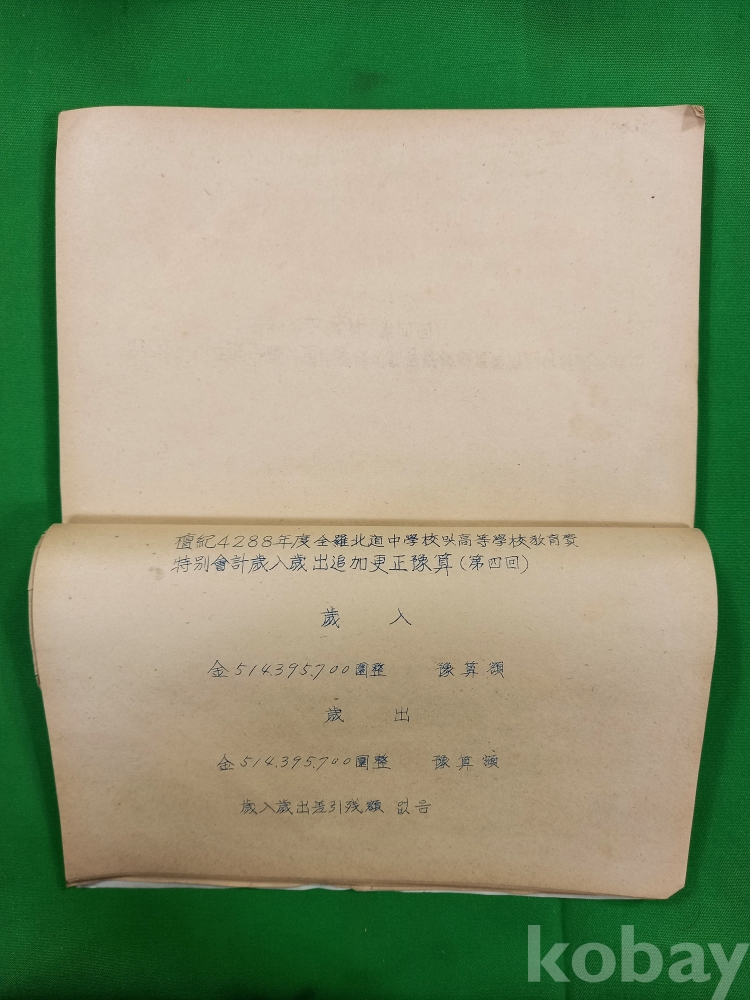 檀紀4288年度全羅北道中學校및高等學校教育費
特別會計歲入歲出追加更正豫算(第四回)
歲 入
金514.395.700圜整 豫算額
歲 出
金514.395.700圜整 豫算額
歲入歲出差引残額 없음
kobay